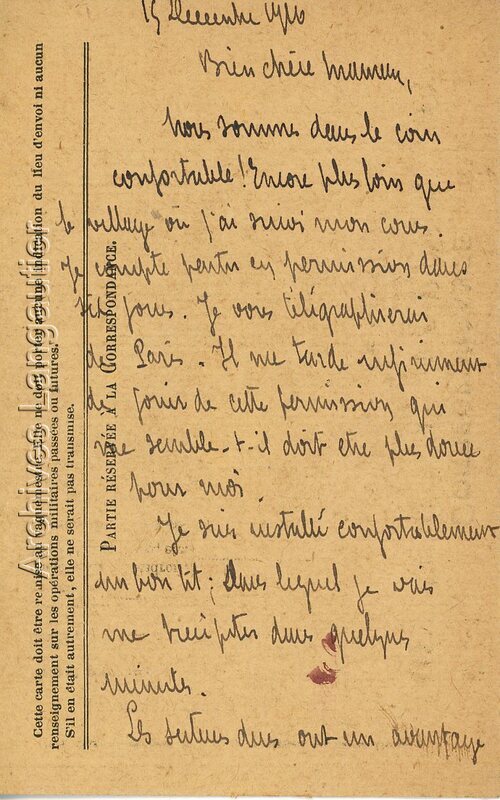 15 Decembre 1916
Bien chère Maman,
Nous sommes dans le coin
confortable! Encore plus loin que
le village où j'ai suivi mon cours.
Je compte partir en permission dans
dix jours. Je vous télégraphierai
de Paris. Il me tarde infiniment
de jouir de cette permission qui
me semble-t-il doit etre plus douce
pour moi.
Je suis installé confortablement
un bon lit; dans lequel je vais
me précipiter dans quelques
minutes.
Les ont un avantage
PARTIE RÉSERVÉE A LA CORRESPONDANCE.
Cette carte doit être remise au vaguemestre. Elle ne doit porter aucune indication du lieu d'envoi ni aucun
renseignement sur les opérations militaires passées ou futures.
S'il en était autrement, elle ne serait pas transmise.
Archives Langautier